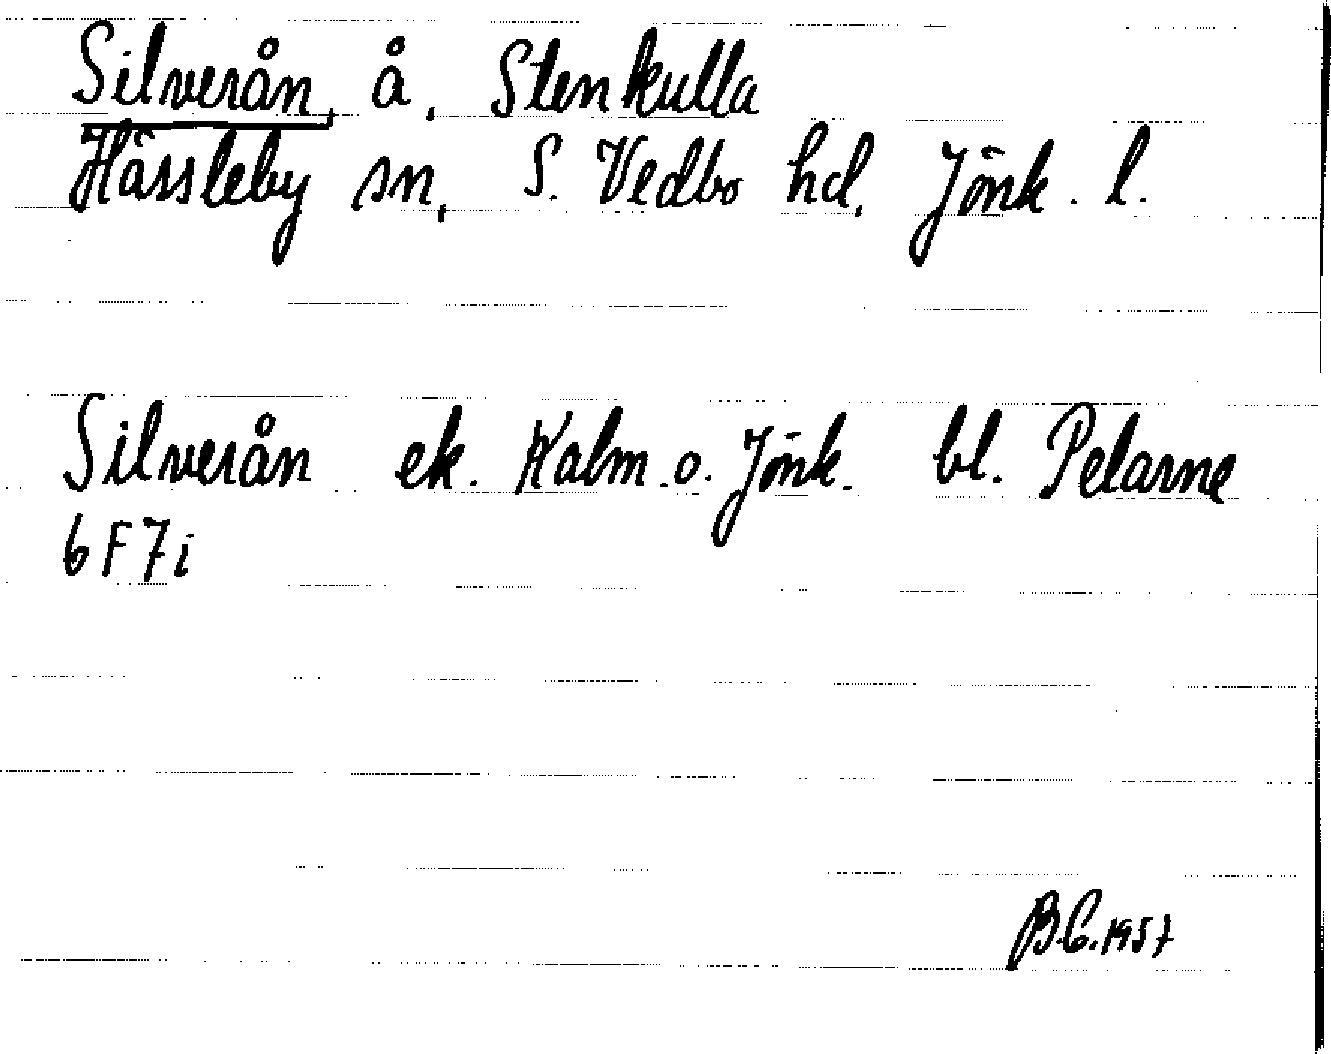 Silverån, å, Stenkulla
Hässleby sn, S. Vedbo hd, Jönk. l.
Silverån ek. Kalm. o. Jönk. bl. Pelarne
6F7i
B.C. 1957